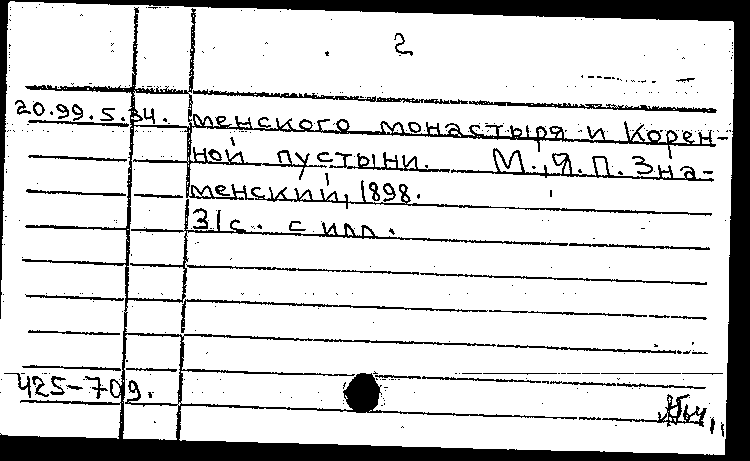 2
20.99.5.34. менского монастыря и Корен-
ной пустыни. М., Я.П. Зна-
менский, 1898.
31с. с илл.
425-709.